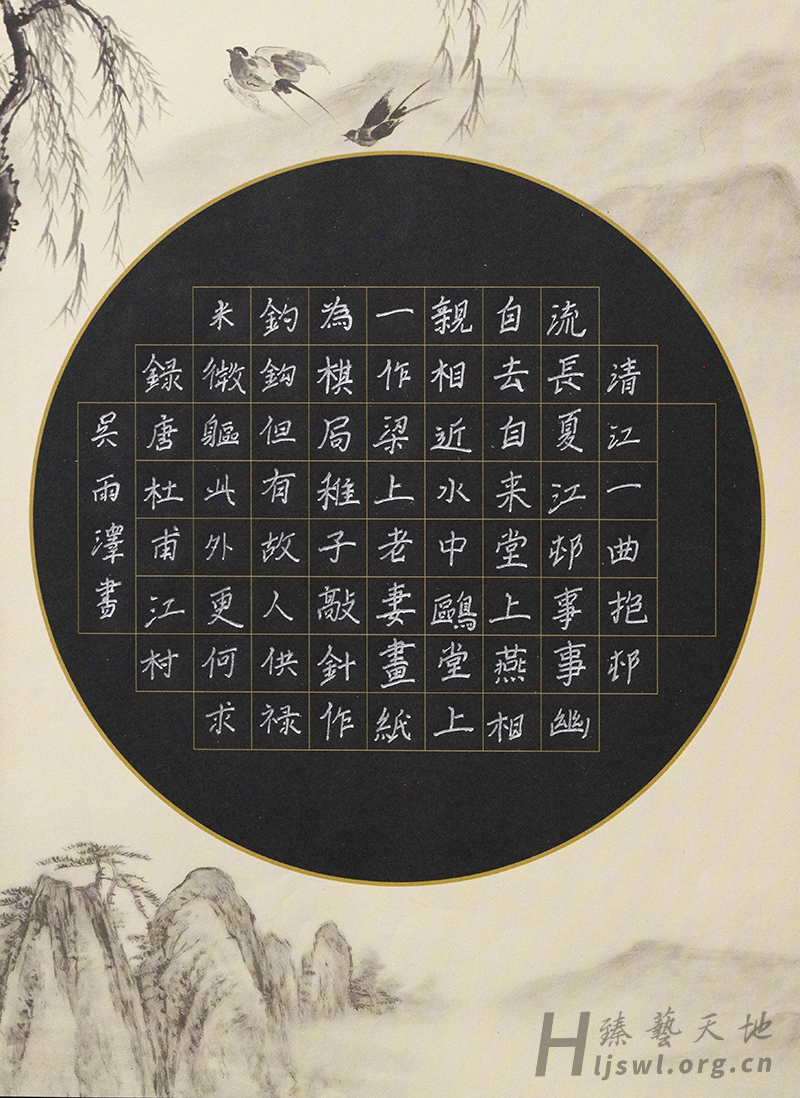 清江一曲抱邨
流長夏江邨事事幽
自去自来堂上燕相
親相近水中鷗堂上
一作梁上老妻畫紙
為棋局稚子敲針作
釣鈎但有故人供禄
米微軀此外更何求
録唐杜甫江村
吳雨澤書
臻藝天地
Hljswl.org.cn